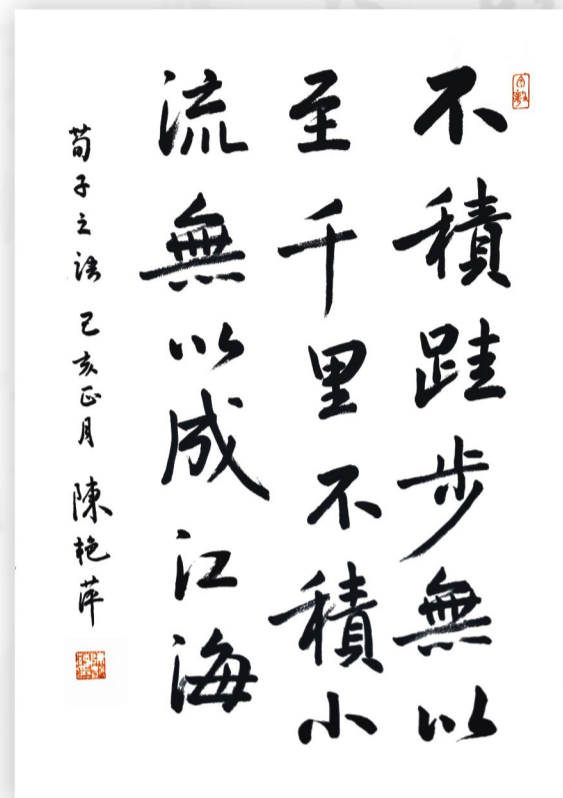 不積跬步無以
至千里不積小
流無以成江海
荀子之語 己亥正月 陳艳萍